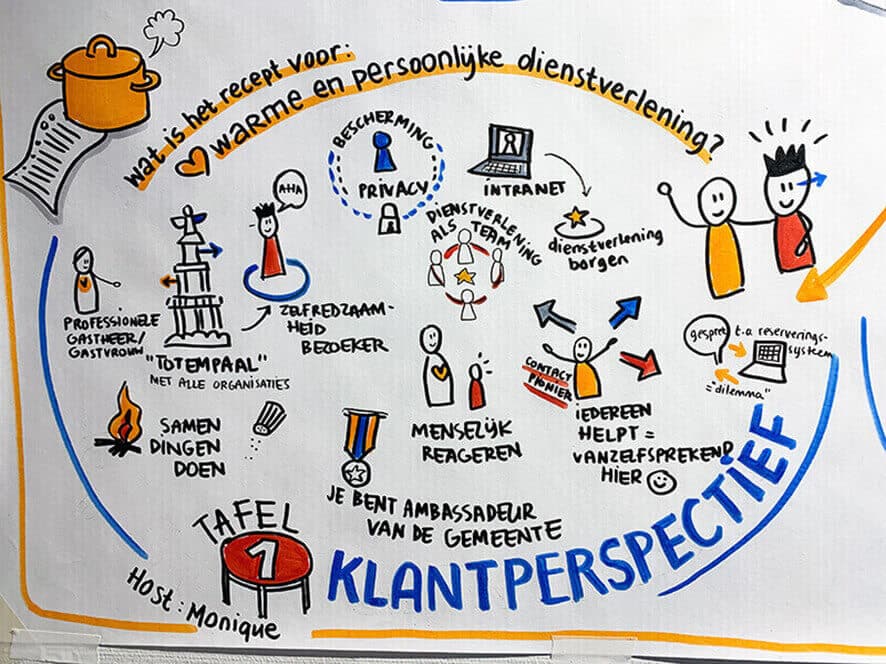 wat is het recept voor:
warme en persoonlijke dienstverlening?
BESCHERMING
PRIVACY
INTRANET
AHA
DIENSTVERLENING
ALS TEAM
dienstverlening
borgen
PROFESSIONELE
GASTHEER/
GASTVROUW
"TOTEMPAAL"
MET ALLE ORGANISATIES
ZELFREDZAAM-
HEID
BEZOEKER
gesprek t.a reserverings-
systeem
="dilemma"
CONTACT
PIONIER
SAMEN
DINGEN
DOEN
MENSELIJK
REAGEREN
IEDEREEN
HELPT =
VANZELFSPREKEND
HIER
JE BENT AMBASSADEUR
VAN DE GEMEENTE
TAFEL
1
KLANTPERSPECTIEF
Host: Monique